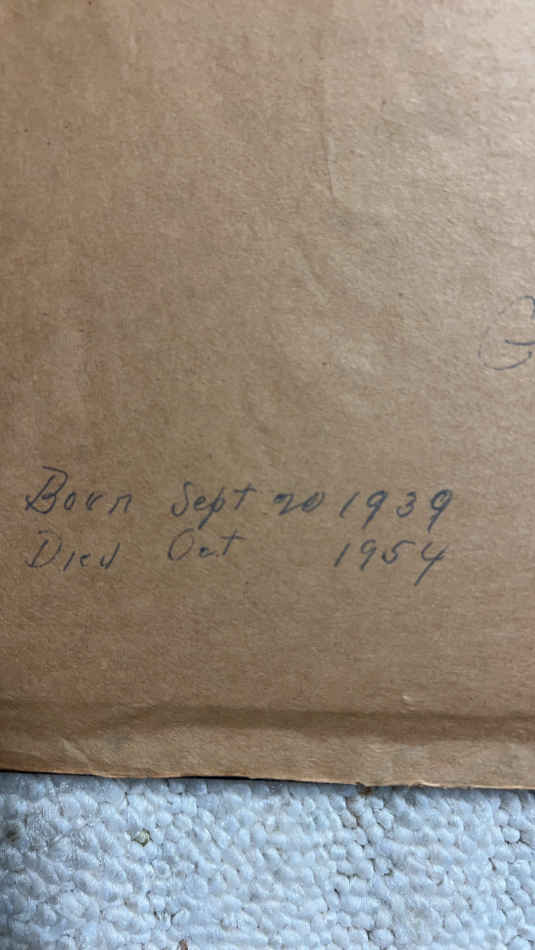 Born Sept 20 1939
Died Oct 1954